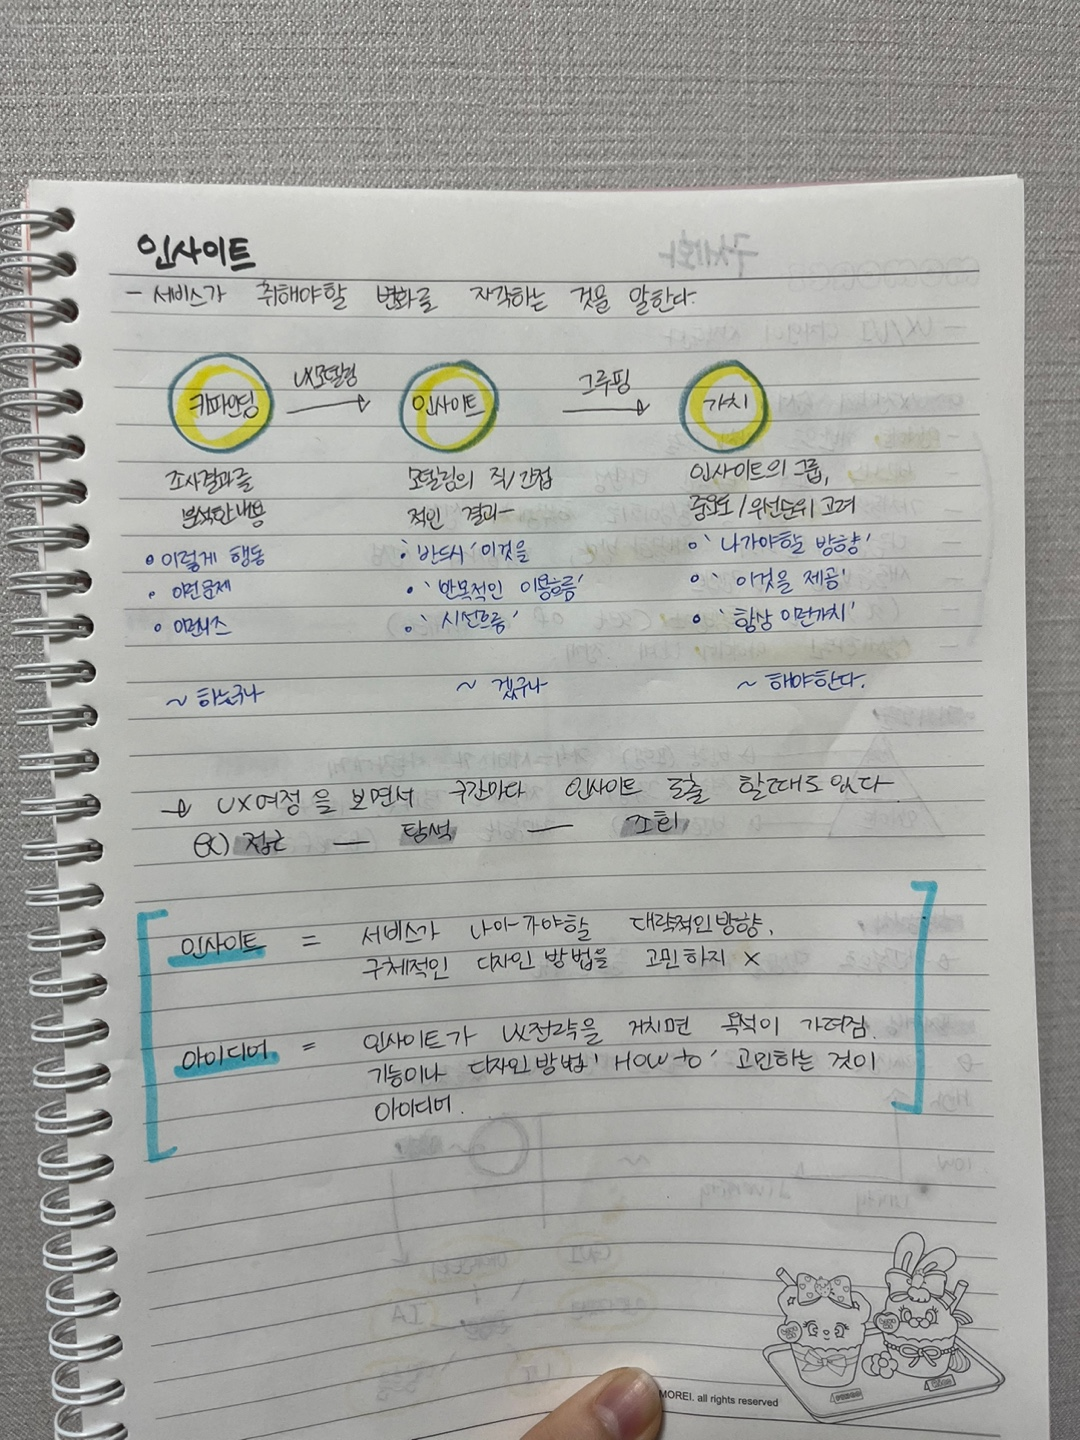 인사이트
- 서비스가 취해야할 변화를 자각하는 것을 말한다.
키파인딩 UX모델링 인사이트 그루핑 가치
조사결과를
분석한내용
• 이렇게 행동
• 이런문제
• 이런니즈
~ 하는구나
모델링의 직/간접
적인 결과
• '반드시' 이것을
• '반복적인 이용흐름'
• '시선흐름'
~ 겠구나
인사이트의 그룹,
중요도/우선순위 고려
• '나가야할 방향'
• '이것을 제공'
• '항상 이런가치'
~ 해야한다.
→ UX여정을 보면서 구간마다 인사이트 도출 할때도 있다.
ex) 접근 — 탐색 — 조회
인사이트 = 서비스가 나아가야할 대략적인방향.
구체적인 디자인 방법을 고민하지 X
아이디어 = 인사이트가 UX전략을 거치면 목적이 가려짐.
기능이나 디자인방법 'HOW to' 고민하는 것이
아이디어.
MOREI. all rights reserved